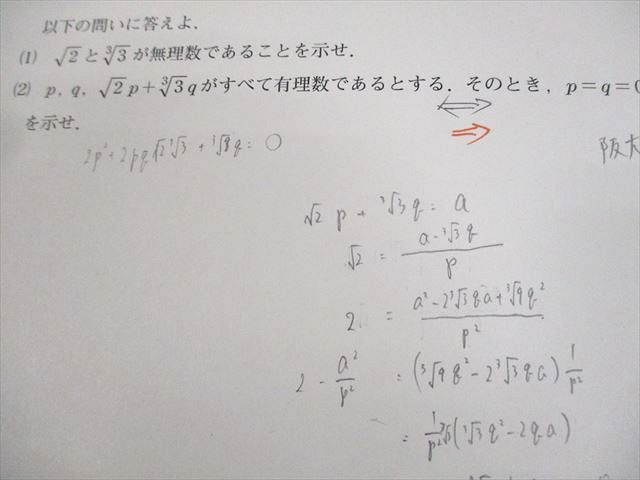 以下の問いに答えよ.
(1) √2 と ∛3 が無理数であることを示せ.
(2) p, q, √2 p + ∛3 q がすべて有理数であるとする. そのとき, p = q = 0
を示せ.
阪大
√2 p + ∛3 q = a
√2 = (a - ∛3 q) / p
2 = (a² - 2∛3 q a + ∛9 q²) / p²
2 - a²/p² = (∛9 q² - 2∛3 q a) 1/p²
= 1/p² ∛3 (∛3 q² - 2 q a)